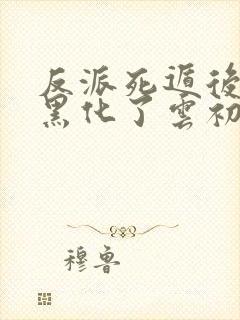 反派死遁後
黑化了雲初
穆魯